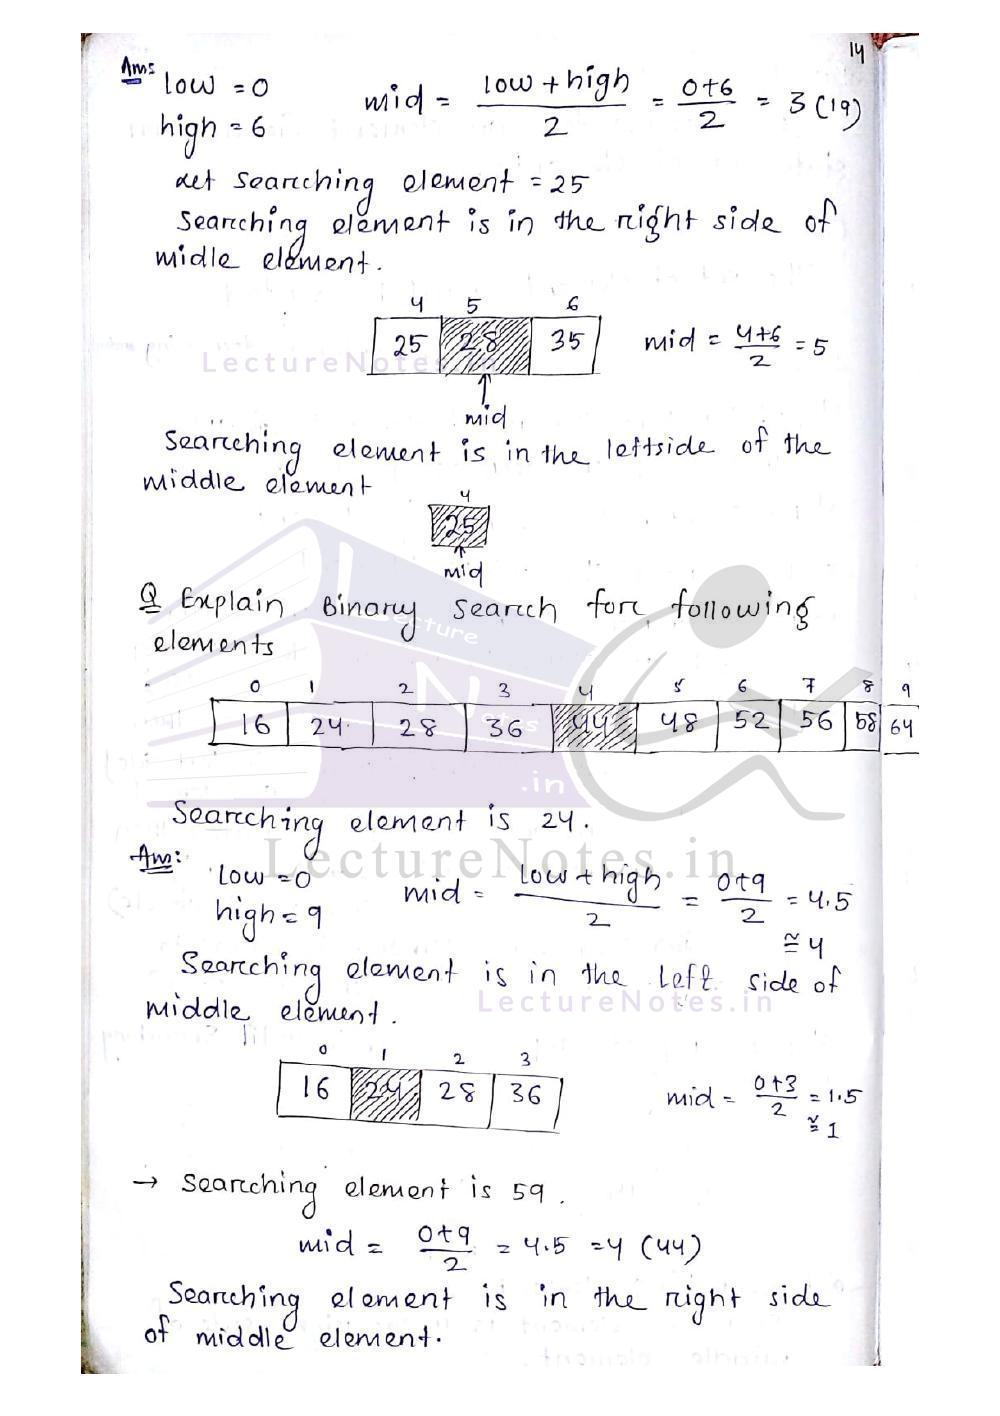 14
Ans:
low = 0
high = 6
mid = low + high / 2 = 0+6 / 2 = 3 (19)
Let Searching element = 25
Searching element is in the right side of
midle element.
4 5 6
25 28 35
mid = 4+6 / 2 = 5
LectureNotes.in
mid
Searching element is in the leftside of the
middle element
4
25
mid
Q Explain Binary Search for following
elements
0 1 2 3 4 5 6 7 8 9
16 24 28 36 44 48 52 56 58 64
Lecture
Notes
.in
Searching element is 24.
LectureNotes.in
Ans:
low = 0
high = 9
mid = low + high / 2 = 0+9 / 2 = 4.5
≅ 4
Searching element is in the left side of
LectureNotes.in
middle element.
0 1 2 3
16 24 28 36
mid = 0+3 / 2 = 1.5
≅ 1
→ Searching element is 59.
mid = 0+9 / 2 = 4.5 = 4 (44)
Searching element is in the right side
of middle element.